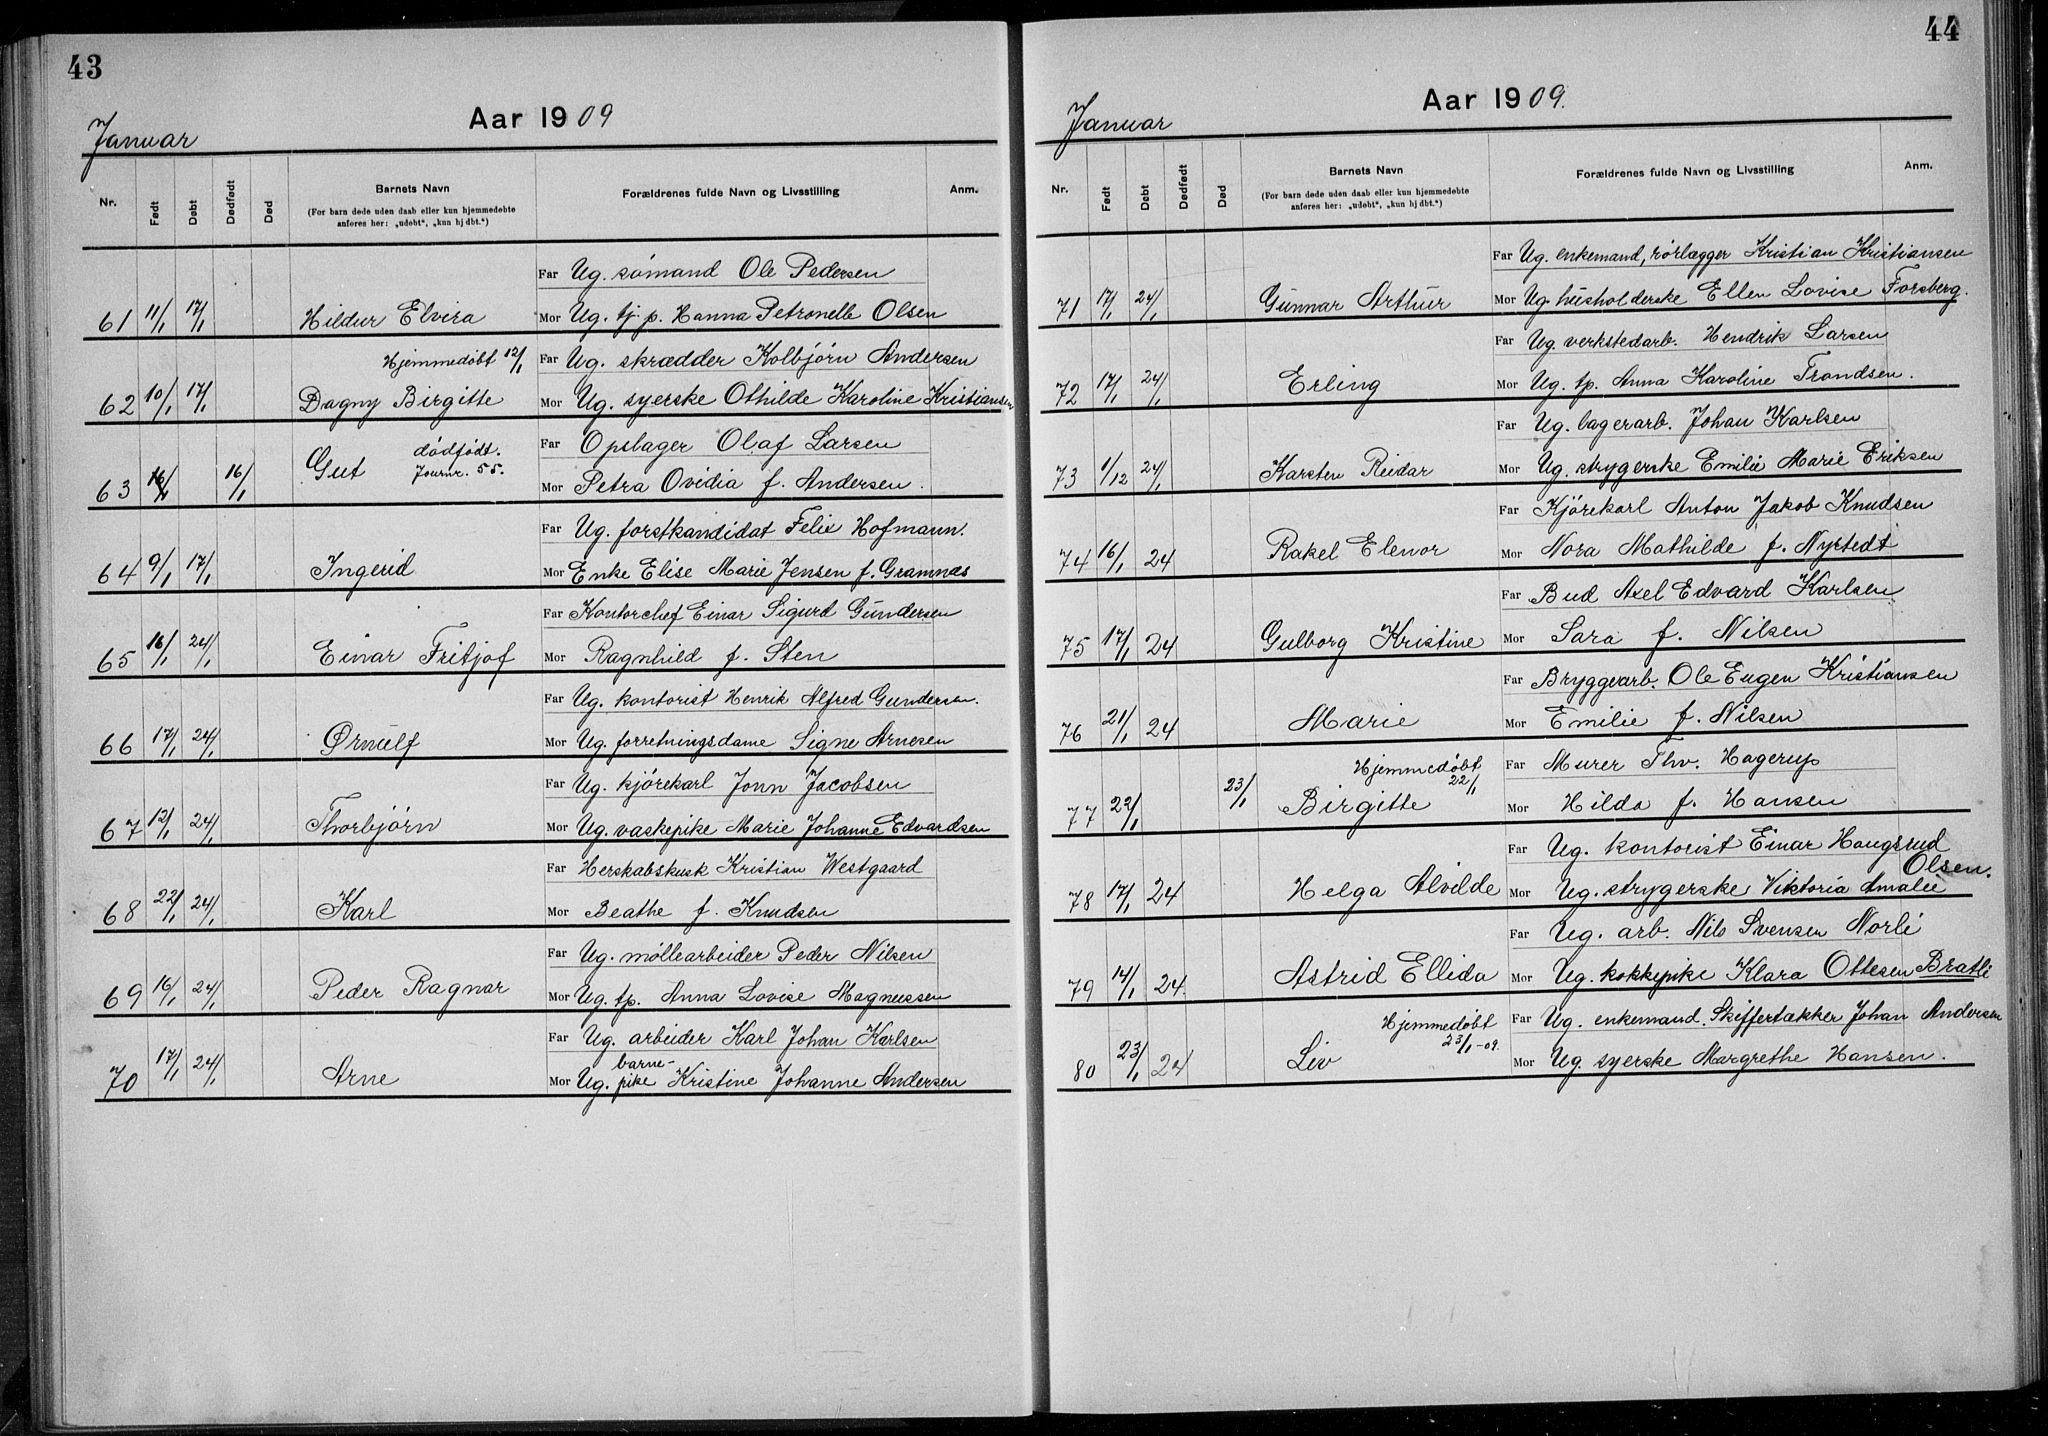 43
Aar 1909
Januar
Nr. Født Døbt Dødfødt Død Barnets Navn Forældrenes fulde Navn og Livsstilling Anm.
(For barn døde uden daab eller kun hjemmedøbte
anføres her: „udøbt“, „kun hj dbt.“)
Far Ug. sømand Ole Pedersen
61 11/1 17/1 Hildur Elvira Mor Ug. tj. p. Hanna Petronelle Olsen
Hjemmedøbt 12/1 Far Ug. skrædder Kolbjørn Andersen
62 10/1 17/1 Dagny Birgitte Mor Ug. syerske Othilde Karoline Kristiansen
dødfødt. Far Opsbager Olaf Larsen
63 16/1 16/1 Gut Journr. 55. Mor Petra Ovidia f. Andersen.
Far Ug. forstkandidat Felix Hofmann.
64 9/1 17/1 Ingerid Mor Enke Elise Marie Jensen f. Gramnæs
Far Kontorchef Einar Sigurd Gundersen
65 16/1 24/1 Einar Fritjof Mor Ragnhild f. Sten
Far Ug. kontorist Henrik Alfred Gundersen.
66 17/1 24/1 Ørnulf Mor Ug. forretningsdame Signe Arnesen
Far Ug. kjørekarl Jonn Jacobsen
67 12/1 24/1 Thorbjørn Mor Ug. vaskepike Marie Johanne Edvardsen
Far Herskabskusk Kristian Westgaard
68 22/1 24/1 Karl Mor Beathe f. Knudsen
Far Ug. møllearbeider Peder Nilsen
69 16/1 24/1 Peder Ragnar Mor Ug. tp. Anna Lovise Magnussen
Far Ug. arbeider Karl Johan Karlsen
barne-
70 17/1 24/1 Arne Mor Ug. pike Kristine Johanne Andersen
44
Aar 1909.
Januar
Nr. Født Døbt Dødfødt Død Barnets Navn Forældrenes fulde Navn og Livsstilling Anm.
(For barn døde uden daab eller kun hjemmedøbte
anføres her: „udøbt“, „kun hj dbt.“)
Far Ug. enkemand, rørlægger Kristian Kristiansen
71 17/1 24/1 Gunnar Arthur Mor Ug. husholderske Ellen Lovise Forsberg.
Far Ug. verkstedarb. Hendrik Larsen
72 17/1 24/1 Erling Mor Ug. tp. Anna Karoline Trondsen.
Far Ug. lagerarb. Johan Karlsen
73 1/12 24/1 Karsten Reidar Mor Ug. strygerske Emilie Marie Eriksen
Far Kjørekarl Anton Jakob Knudsen
74 16/1 24 Rakel Elenor Mor Nora Mathilde f. Nystedt
Far Bud Axel Edvard Karlsen
75 17/1 24 Gulborg Kristine Mor Sara f. Nilsen
Far Bryggearb. Ole Eugen Kristiansen
76 21/1 24 Marie Mor Emilie f. Nilsen
Hjemmedøbt 22/1 Far Murer Thv. Hagerup
77 22/1 23/1 Birgitte Mor Hilda f. Hansen
Far Ug. kontorist Einar Haugsrud
Olsen.
78 17/1 24 Helga Alvilde Mor Ug. strygerske Viktoria Amalie
Far Ug. arb. Nils Svensen Norli
79 14/1 24. Astrid Ellida Mor Ug. kokkepike Klara Ottesen Bratli
Hjemmedøbt 23/1-09. Far Ug. enkemand. Skiffertækker Johan Andersen
80 23/1 24 Liv Mor Ug. syerske Margrethe Hansen.